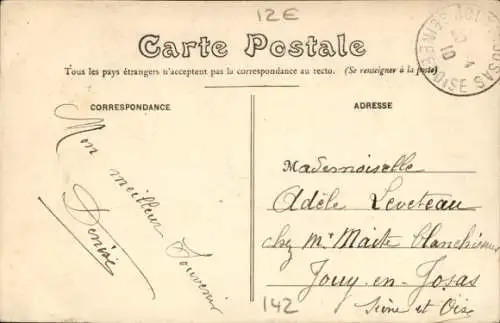 12E
Carte Postale
Tous les pays étrangers n'acceptent pas la correspondance au recto. (Se renseigner à la poste)
CORRESPONDANCE
Mon meilleur Souvenir
Denise
ADRESSE
Mademoiselle
Adèle Leveteau
chez Mr Maite blanchisseur
Jouy-en-Josas
Seine et Oise
142
SEINE ET OISE
10